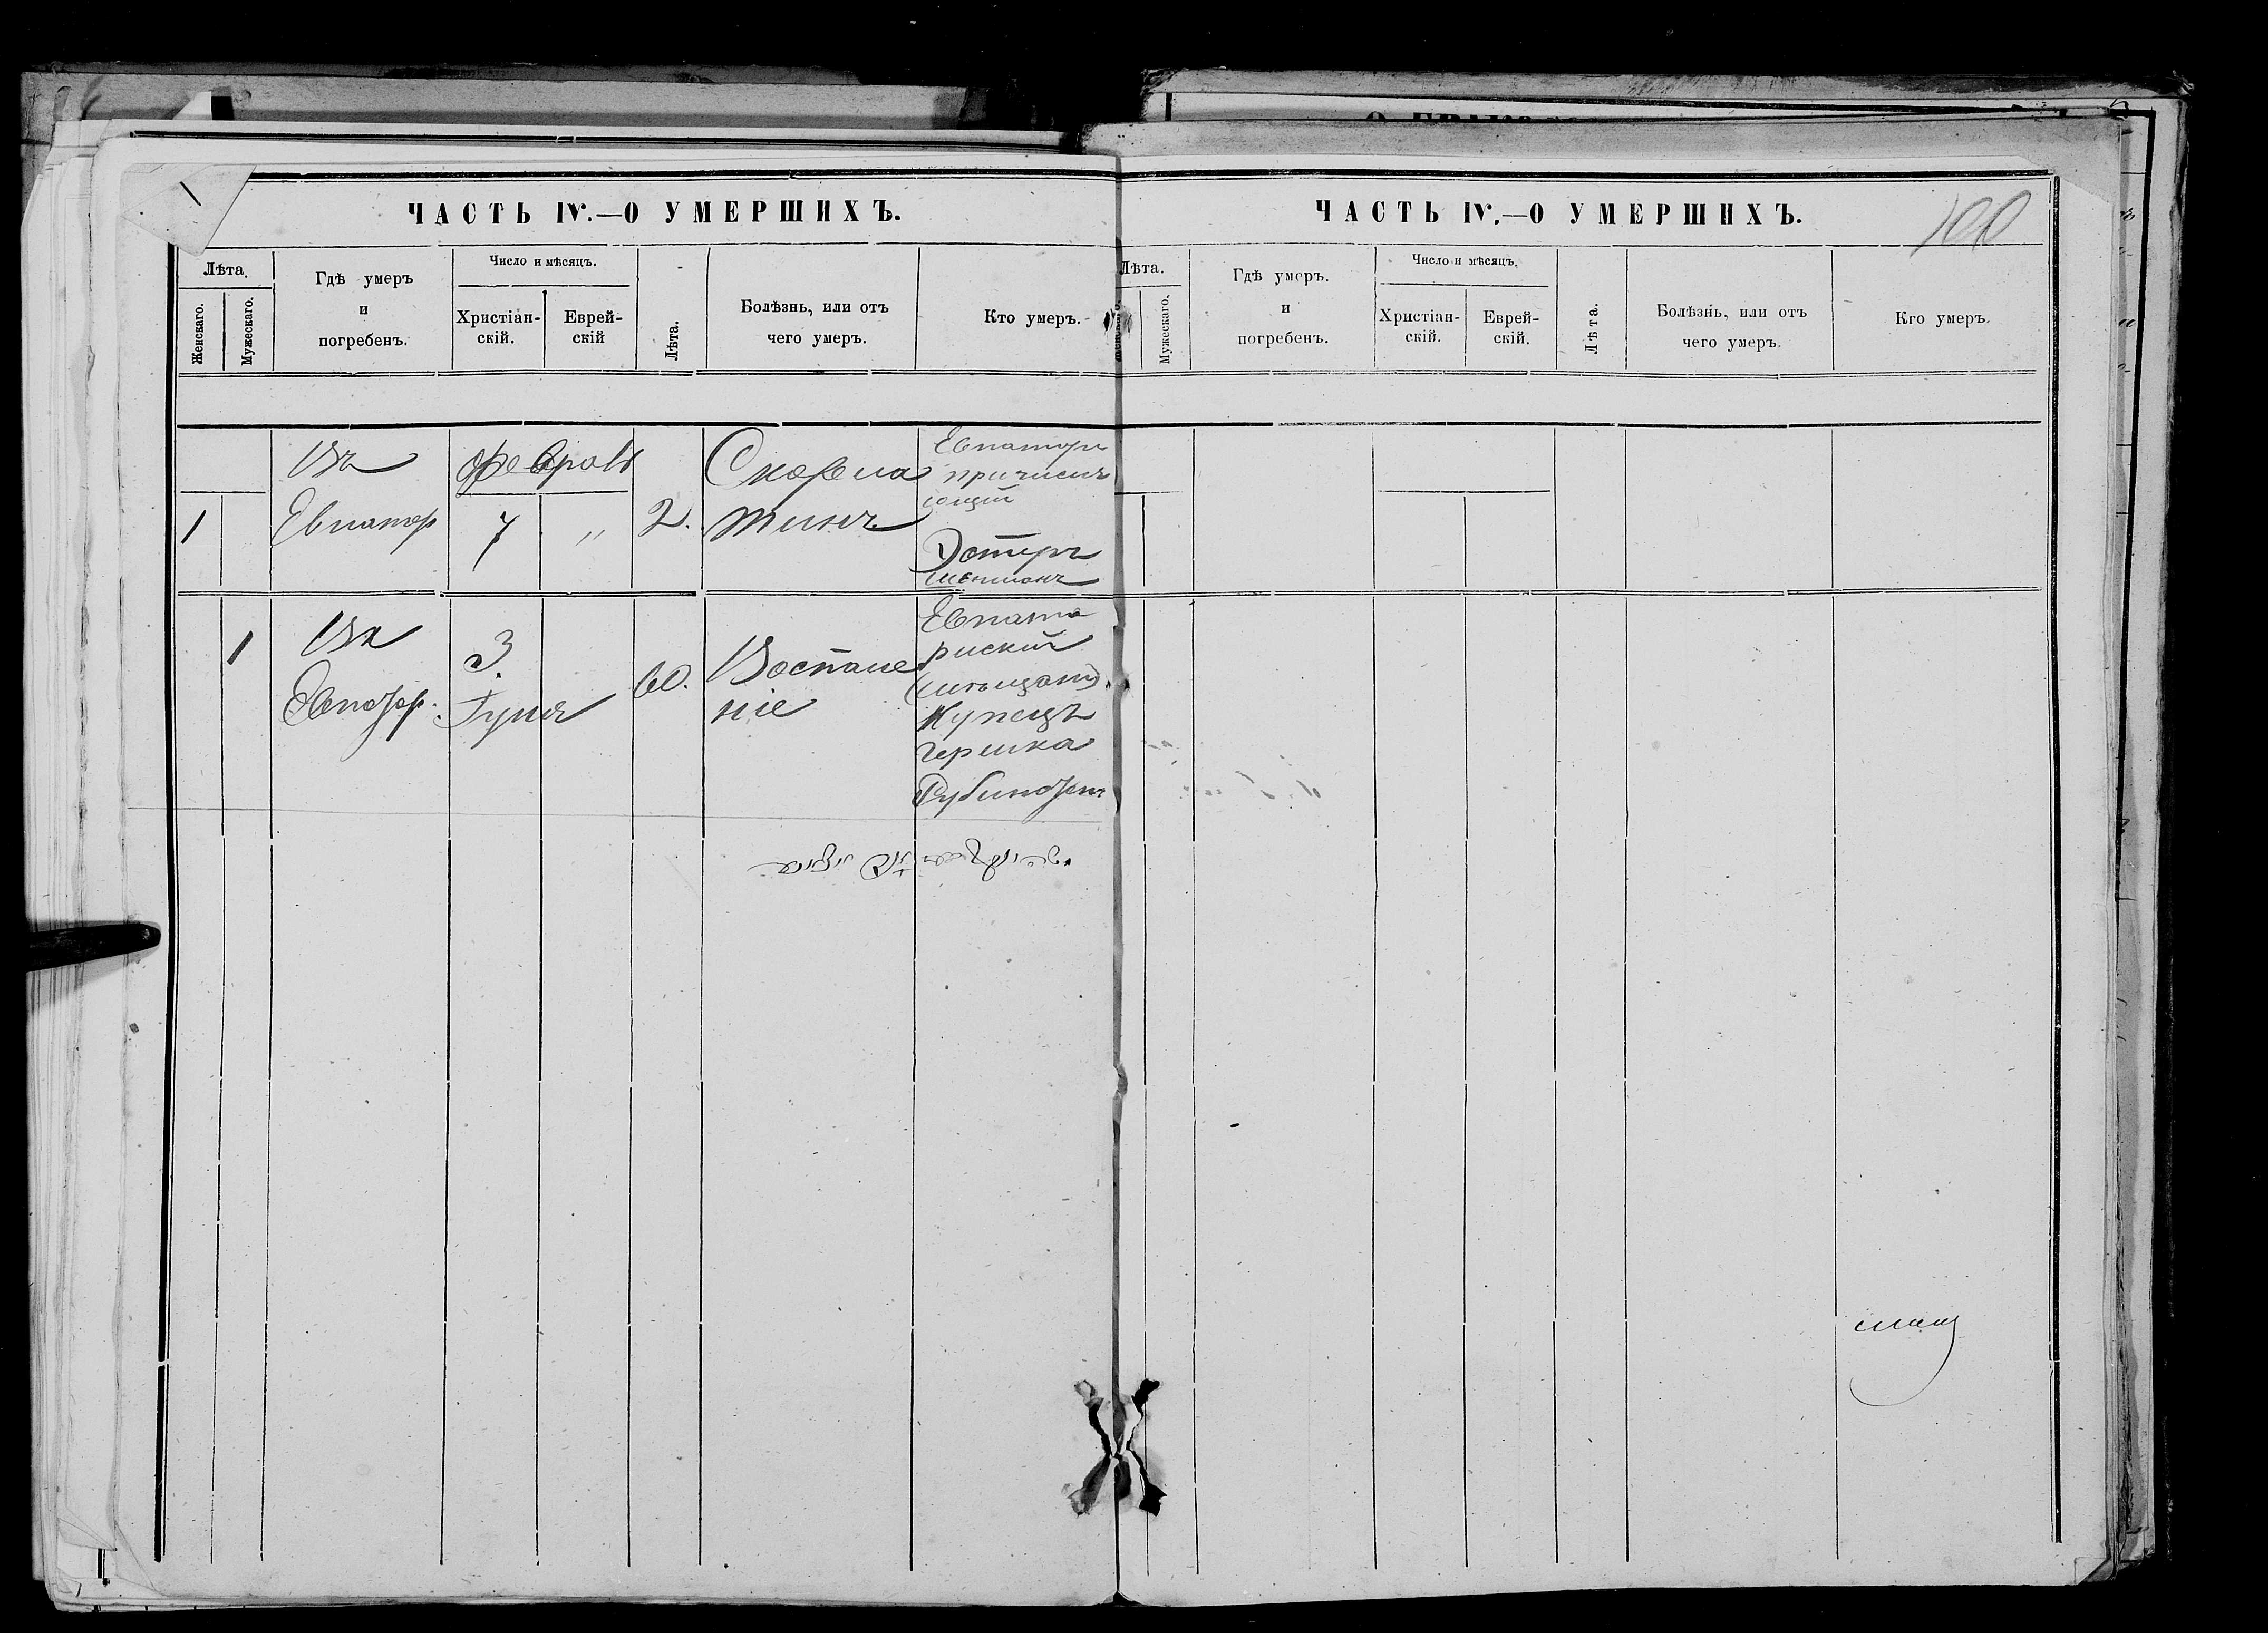 ЧАСТЬ IV.—О УМЕРШИХЪ.
Лѣта.
Женскаго.
Мужескаго.
Гдѣ умеръ
и
погребенъ.
Число и мѣсяцъ.
Христіан-
скій.
Еврей-
скій
Лѣта.
Болѣзнь, или отъ
чего умеръ.
Кто умеръ.
1
Въ
Евпатор
Февраль
7
"
2.
Скарла
тинъ
Евпатори
причисл
ющій
1
Въ
Евпатор.
3.
Iуня
60.
Воспале
ніе
Евпато
рискій
Купецъ
Гершка
ЧАСТЬ IV.—О УМЕРШИХЪ.
100
Лѣта.
Мужескаго.
Гдѣ умеръ.
и
погребенъ.
Число и мѣсяцъ.
Христіан-
скій.
Еврей-
скій.
Лѣта.
Болѣзнь, или отъ
чего умеръ.
Кто умеръ.